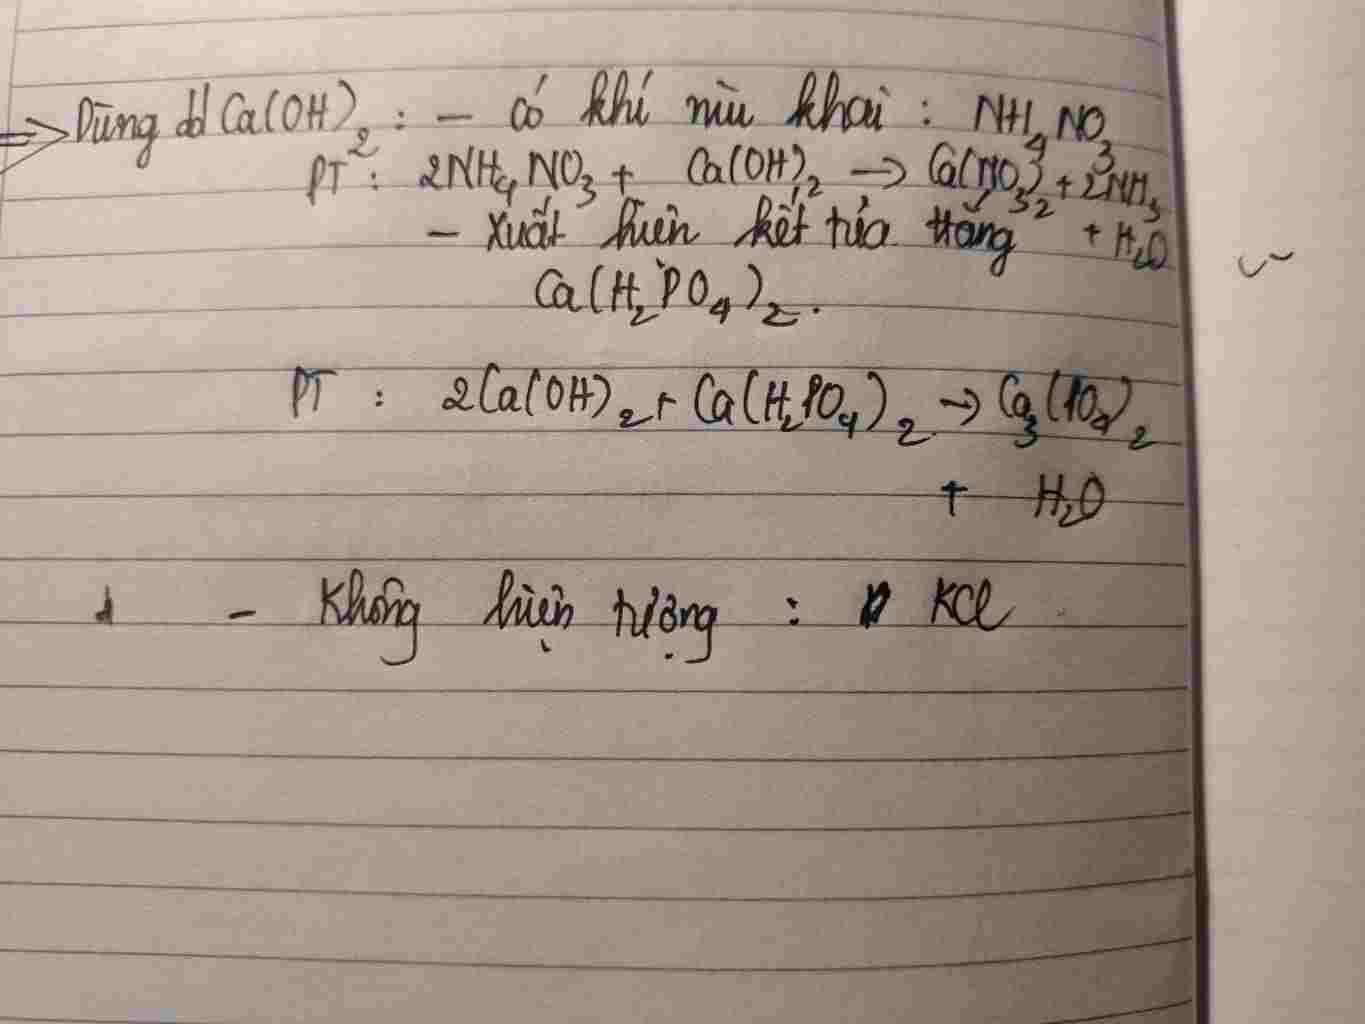 => Dùng dd Ca(OH)2 : - có khí mùi khai : NH4NO3
PT : 2NH4NO3 + Ca(OH)2 -> Ca(NO3)2 + 2NH3
- Xuất hiện kết tủa trắng + H2O
Ca(H2PO4)2.
PT : 2Ca(OH)2 + Ca(H2PO4)2 -> Ca3(PO4)2
+ H2O
- Không hiện tượng : KCl